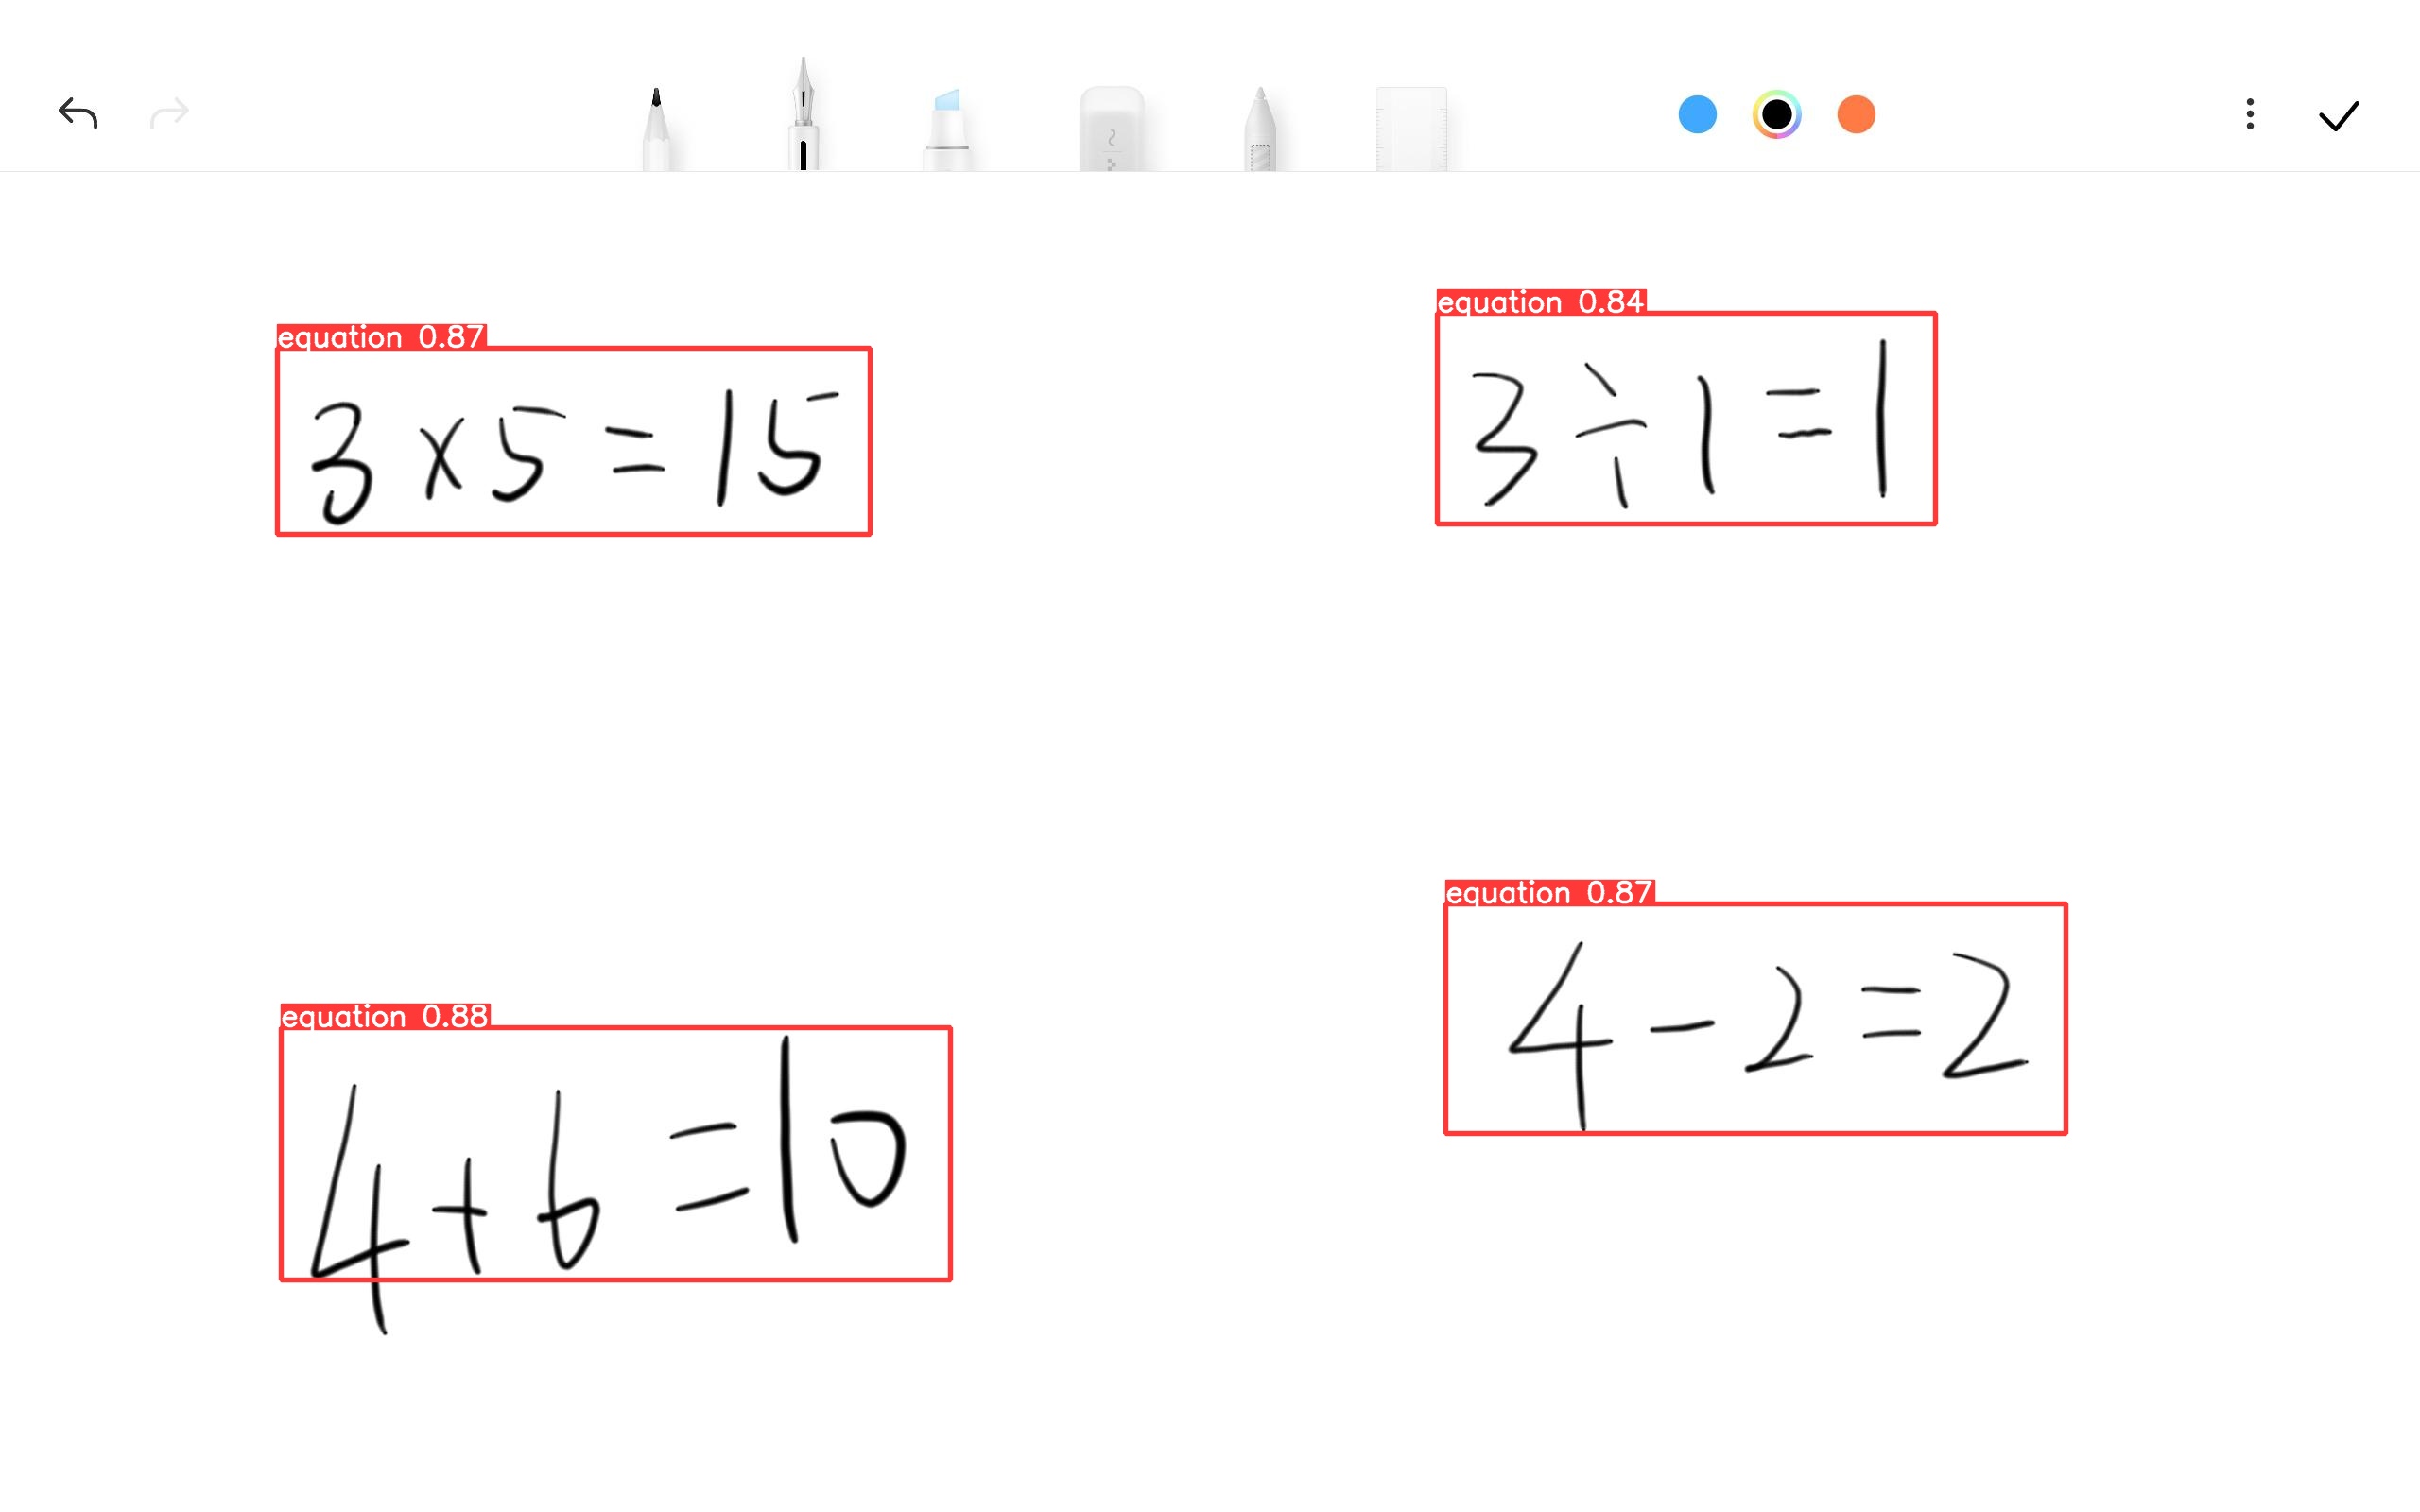 equation 0.87
3×5=15
equation 0.84
3÷1=1
equation 0.87
4-2=2
equation 0.88
4+6=10